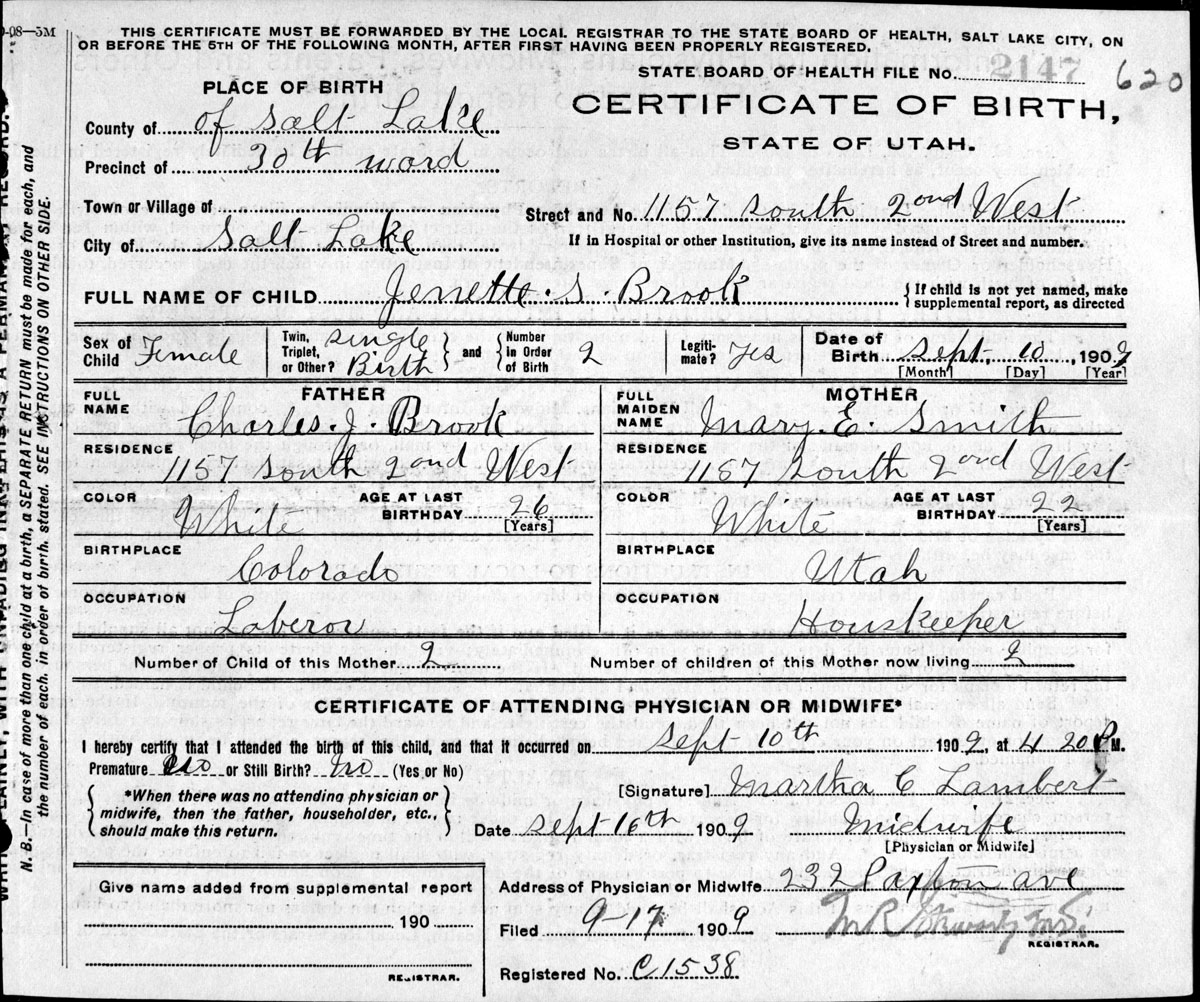 0-08—5M
THIS CERTIFICATE MUST BE FORWARDED BY THE LOCAL REGISTRAR TO THE STATE BOARD OF HEALTH, SALT LAKE CITY, ON
OR BEFORE THE 5TH OF THE FOLLOWING MONTH, AFTER FIRST HAVING BEEN PROPERLY REGISTERED.
STATE BOARD OF HEALTH FILE No. 2147 620
PLACE OF BIRTH
CERTIFICATE OF BIRTH,
STATE OF UTAH.
County of of Salt Lake
Precinct of 30th ward
Town or Village of
Street and No. 1157 South 2ond West
City of Salt Lake
If in Hospital or other Institution, give its name instead of Street and number.
FULL NAME OF CHILD Jenette. S. Brook { If child is not yet named, make
supplemental report, as directed
Sex of Child Female Twin, Triplet, or Other? Single Birth } and { Number in Order of Birth 2 Legiti-mate? Yes Date of Birth Sept. 10, 1909
[Month] [Day] [Year]
FATHER
FULL NAME Charles. J. Brook
RESIDENCE 1157 South 2ond West
COLOR White AGE AT LAST BIRTHDAY 26 [Years]
BIRTHPLACE Colorado
OCCUPATION Laberor
MOTHER
FULL MAIDEN NAME Mary. E. Smith
RESIDENCE 1157 South 2ond West
COLOR White AGE AT LAST BIRTHDAY 22 [Years]
BIRTHPLACE Utah
OCCUPATION Houskeeper
Number of Child of this Mother 2 Number of children of this Mother now living 2
CERTIFICATE OF ATTENDING PHYSICIAN OR MIDWIFE*
I hereby certify that I attended the birth of this child, and that it occurred on Sept 10th 1909, at 4 20 P.M.
Premature no or Still Birth? no (Yes or No)
[Signature] Martha C Lambert
{ *When there was no attending physician or
midwife, then the father, householder, etc.,
should make this return. }
Date Sept 16th 1909 Midwife
[Physician or Midwife]
Give name added from supplemental report
190
REGISTRAR.
Address of Physician or Midwife 232 Paxton ave
Filed 9-17 1909
REGISTRAR.
Registered No. C1538
N. B.—In case of more than one child at a birth, a SEPARATE RETURN must be made for each, and
the number of each, in order of birth, stated. SEE INSTRUCTIONS ON OTHER SIDE.